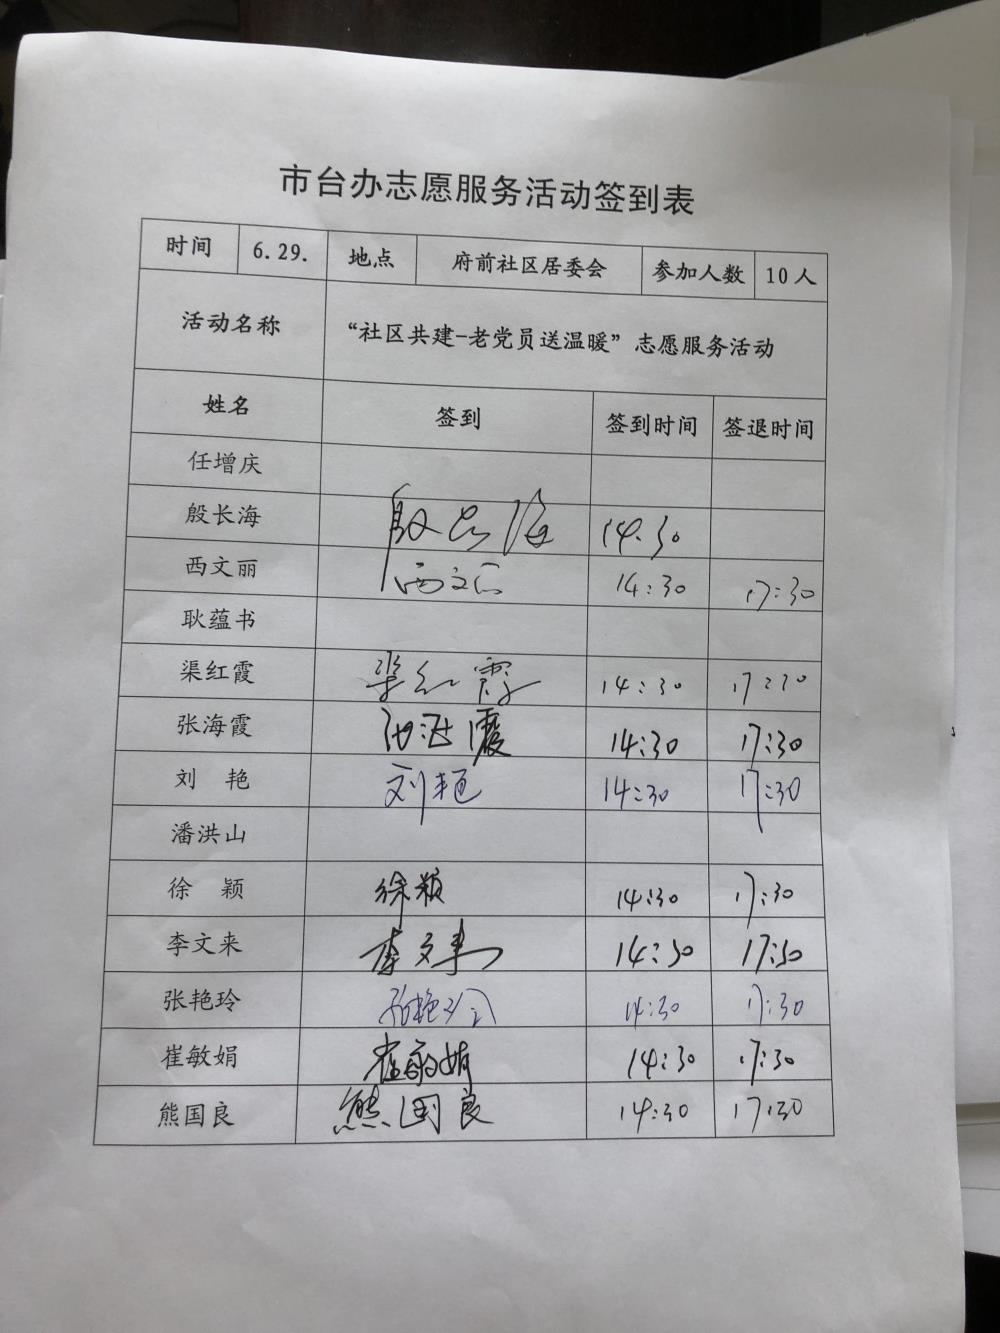 市台办志愿服务活动签到表
时间 6.29. 地点 府前社区居委会 参加人数 10人
活动名称 “社区共建-老党员送温暖”志愿服务活动
姓名 签到 签到时间 签退时间
任增庆
殷长海 殷长海 14:30
西文丽 西文丽 14:30 17:30
耿蕴书
渠红霞 渠红霞 14:30 17:30
张海霞 张海霞 14:30 17:30
刘 艳 刘艳 14:30 17:30
潘洪山
徐 颖 徐颖 14:30 17:30
李文来 李文来 14:30 17:30
张艳玲 张艳玲 14:30 17:30
崔敏娟 崔敏娟 14:30 17:30
熊国良 熊国良 14:30 17:30